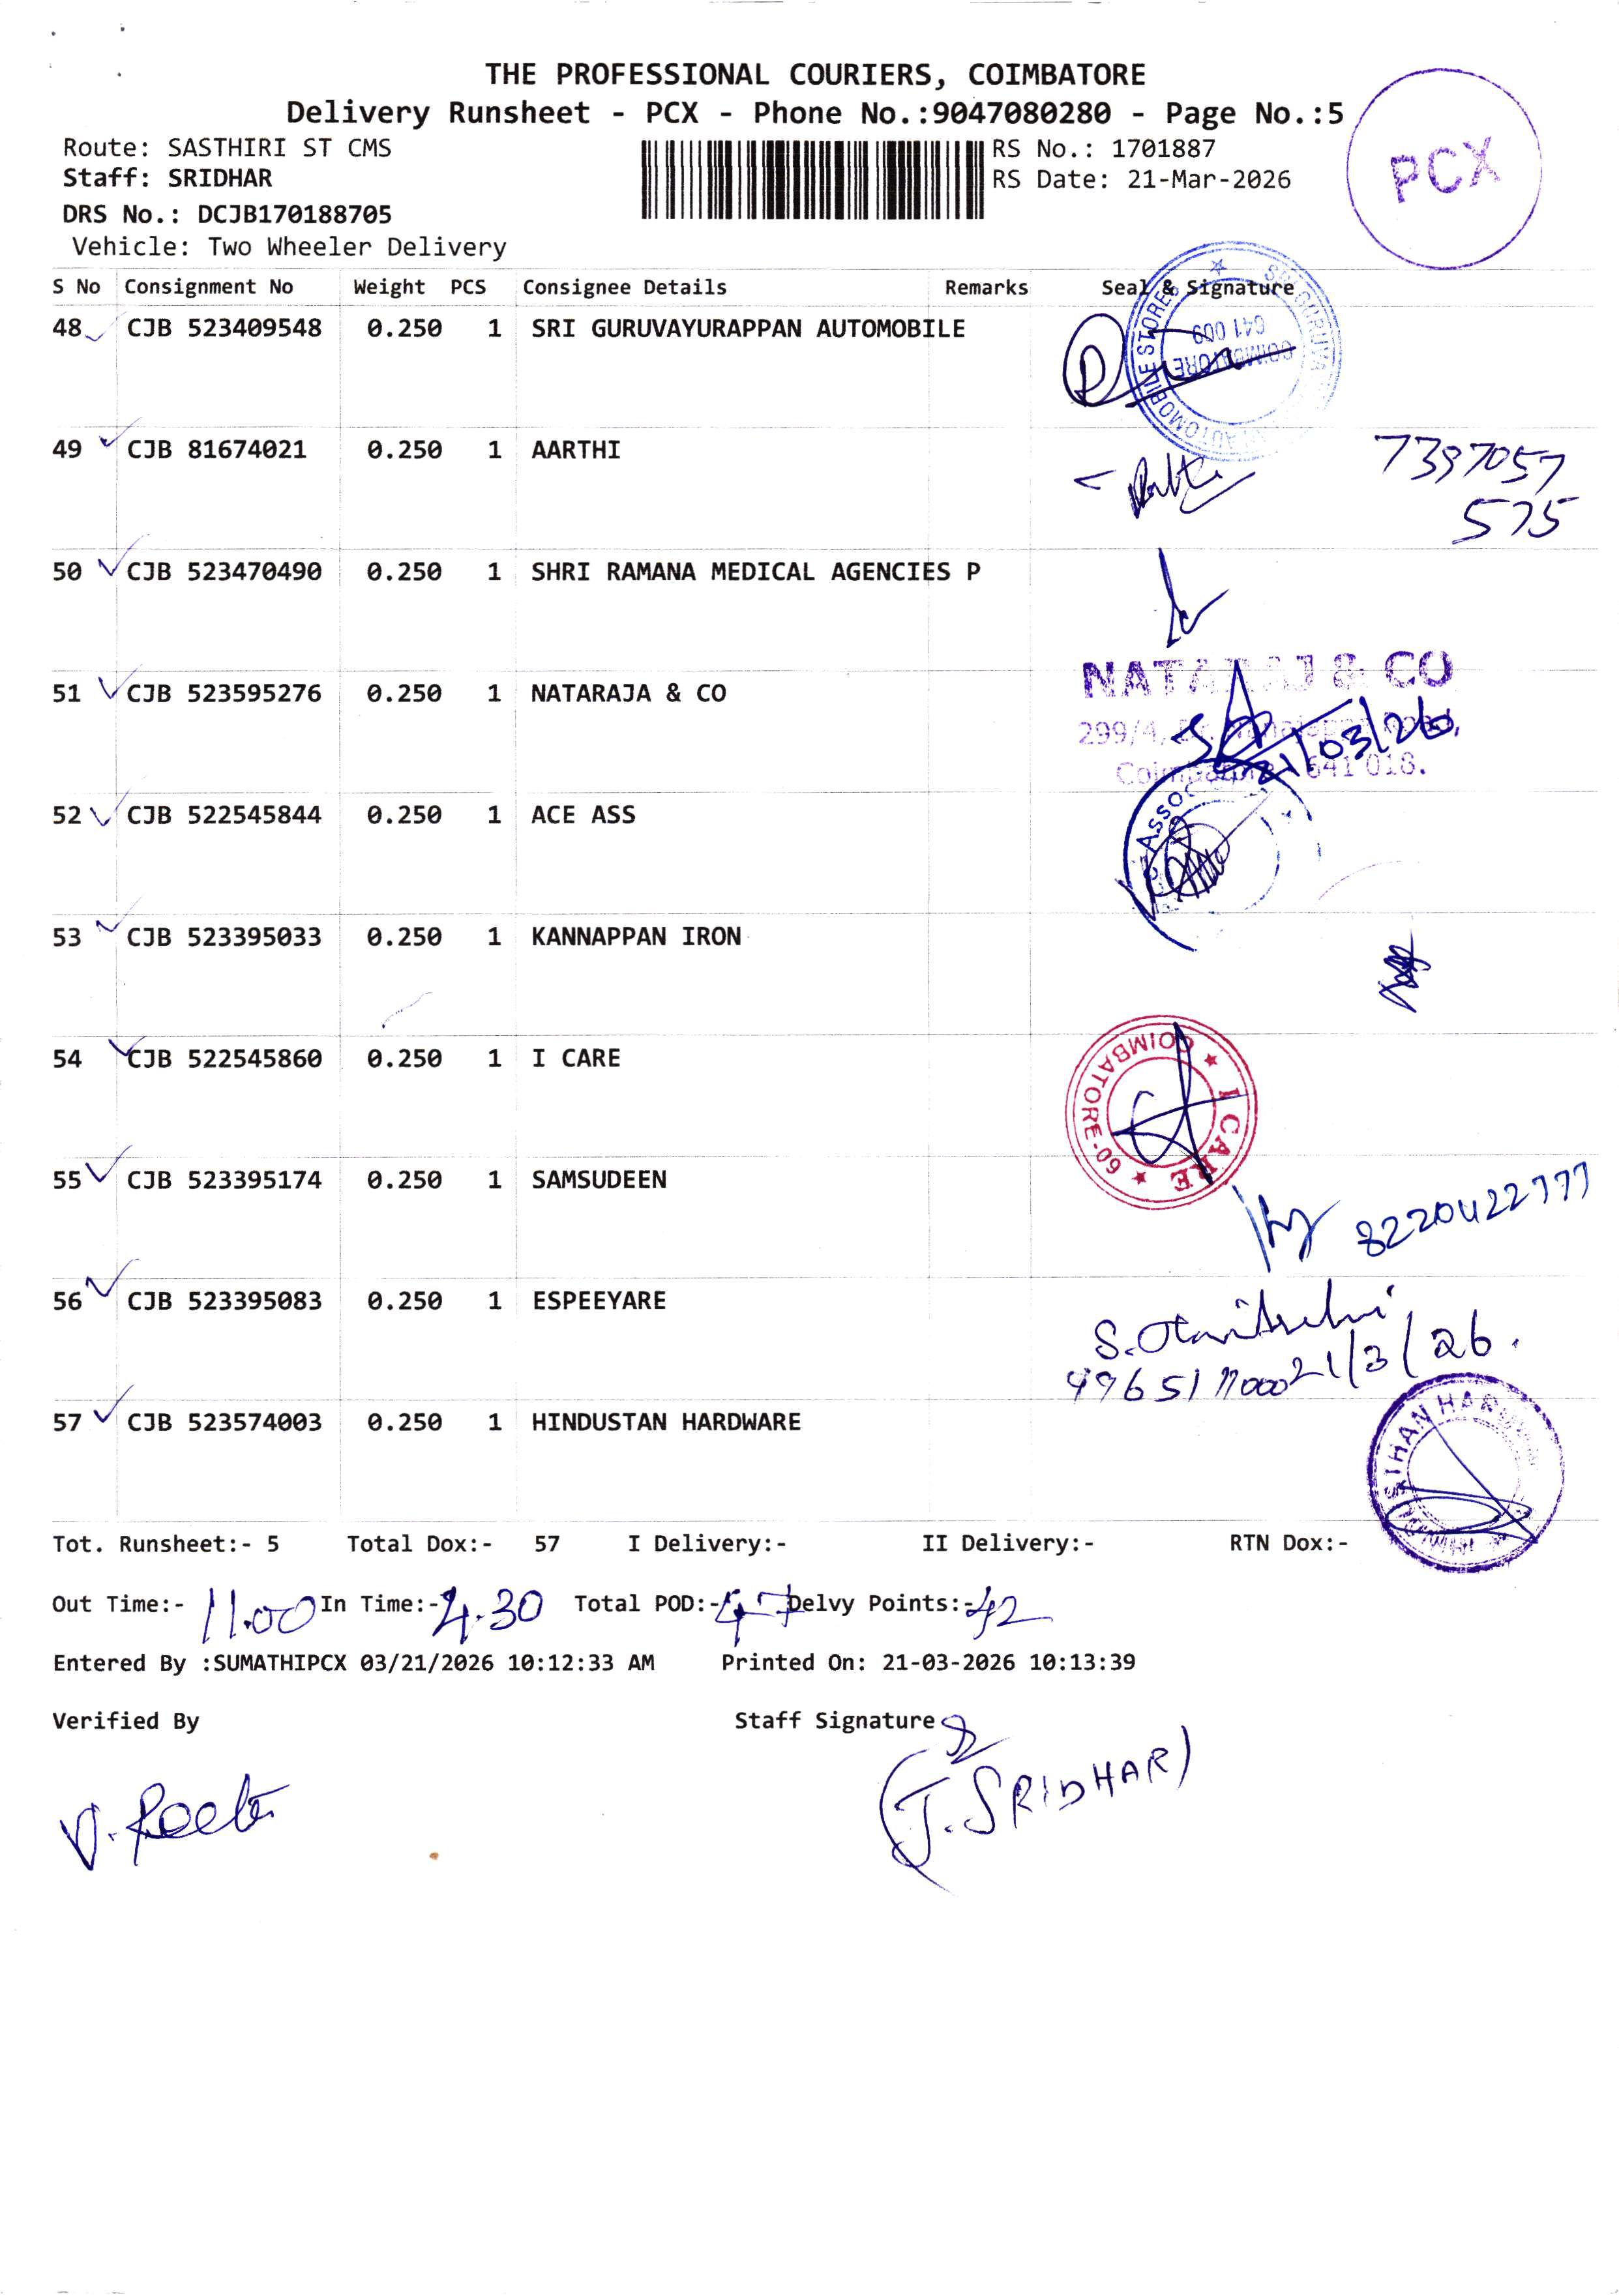 THE PROFESSIONAL COURIERS, COIMBATORE
Delivery Runsheet - PCX - Phone No.:9047080280 - Page No.:5
Route: SASTHIRI ST CMS
RS No.: 1701887
PCX
Staff: SRIDHAR
RS Date: 21-Mar-2026
DRS No.: DCJB170188705
Vehicle: Two Wheeler Delivery
S No Consignment No Weight PCS Consignee Details Remarks Seal & Signature
48 CJB 523409548 0.250 1 SRI GURUVAYURAPPAN AUTOMOBILE
AUTOMOBILE STORES
COIMBATORE
641 009
49 CJB 81674021 0.250 1 AARTHI
7397057
575
50 CJB 523470490 0.250 1 SHRI RAMANA MEDICAL AGENCIES P
51 CJB 523595276 0.250 1 NATARAJA & CO
NATARAJ & CO
299/4,
21/03/26
Coimbatore 641 018.
52 CJB 522545844 0.250 1 ACE ASS
53 CJB 523395033 0.250 1 KANNAPPAN IRON
54 CJB 522545860 0.250 1 I CARE
I CARE
COIMBATORE-09
55 CJB 523395174 0.250 1 SAMSUDEEN
8220422777
56 CJB 523395083 0.250 1 ESPEEYARE
21/3/26.
57 CJB 523574003 0.250 1 HINDUSTAN HARDWARE
Tot. Runsheet:- 5 Total Dox:- 57 I Delivery:- II Delivery:- RTN Dox:-
Out Time:- 11.00 In Time:- 4.30 Total POD:- 47 Delvy Points:- 42
Entered By :SUMATHIPCX 03/21/2026 10:12:33 AM Printed On: 21-03-2026 10:13:39
Verified By Staff Signature
(J. SRIDHAR)